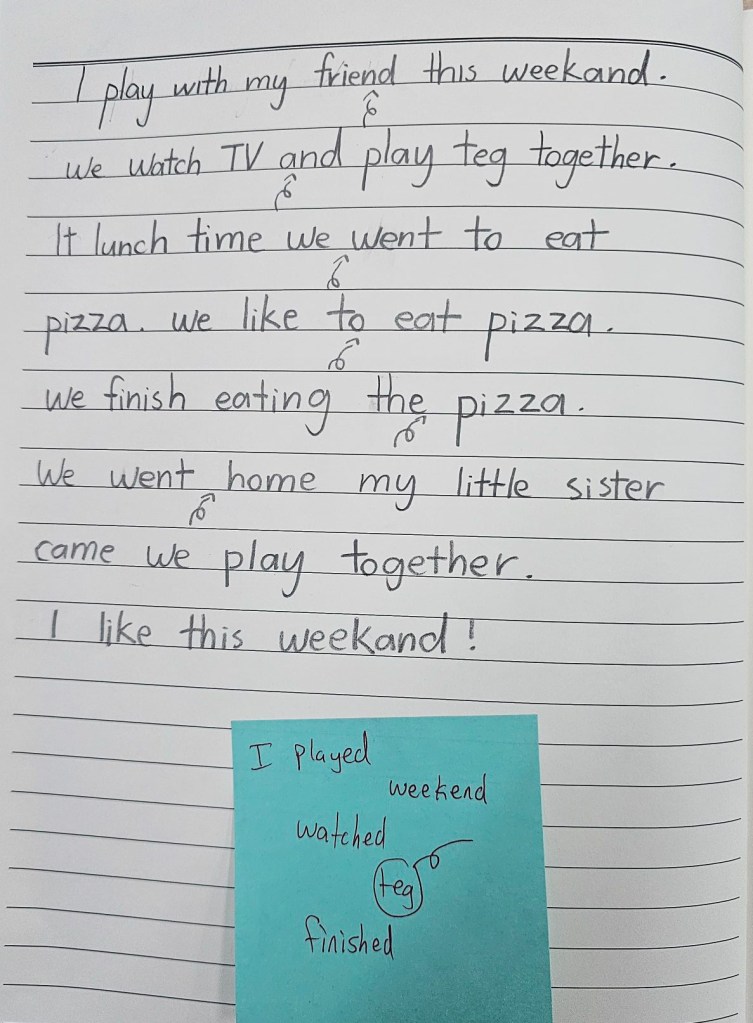 I play with my friend this weekand.
we watch TV and play teg together.
It lunch time we went to eat
pizza. we like to eat pizza.
we finish eating the pizza.
We went home my little sister
came we play together.
I like this weekand!
I played
weekend
watched
teg
finished